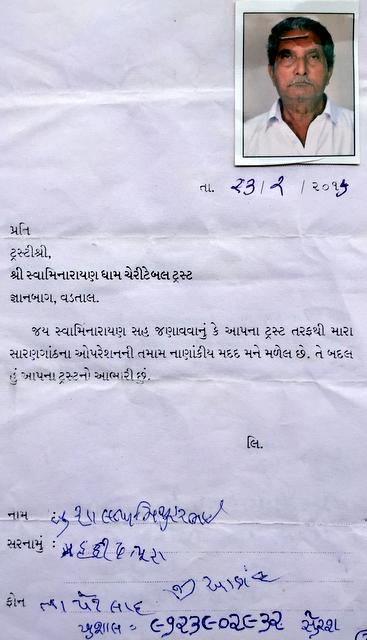 તા. ૨૩/૨/૨૦૧૫
પ્રતિ
ટ્રસ્ટીશ્રી,
શ્રી સ્વામિનારાયણ ધામ ચેરીટેબલ ટ્રસ્ટ
જ્ઞાનબાગ, વડતાલ.
જય સ્વામિનારાયણ સહ જણાવવાનું કે આપના ટ્રસ્ટ તરફથી મારા
સારણગાંઠના ઓપરેશનની તમામ નાણાંકીય મદદ મને મળેલ છે. તે બદલ
હું આપના ટ્રસ્ટનો આભારી છું.
લિ.
નામ :
સરનામું :
ફોન
ખુશાલ = ૯૧૨૩૯૦૨૯૩૨